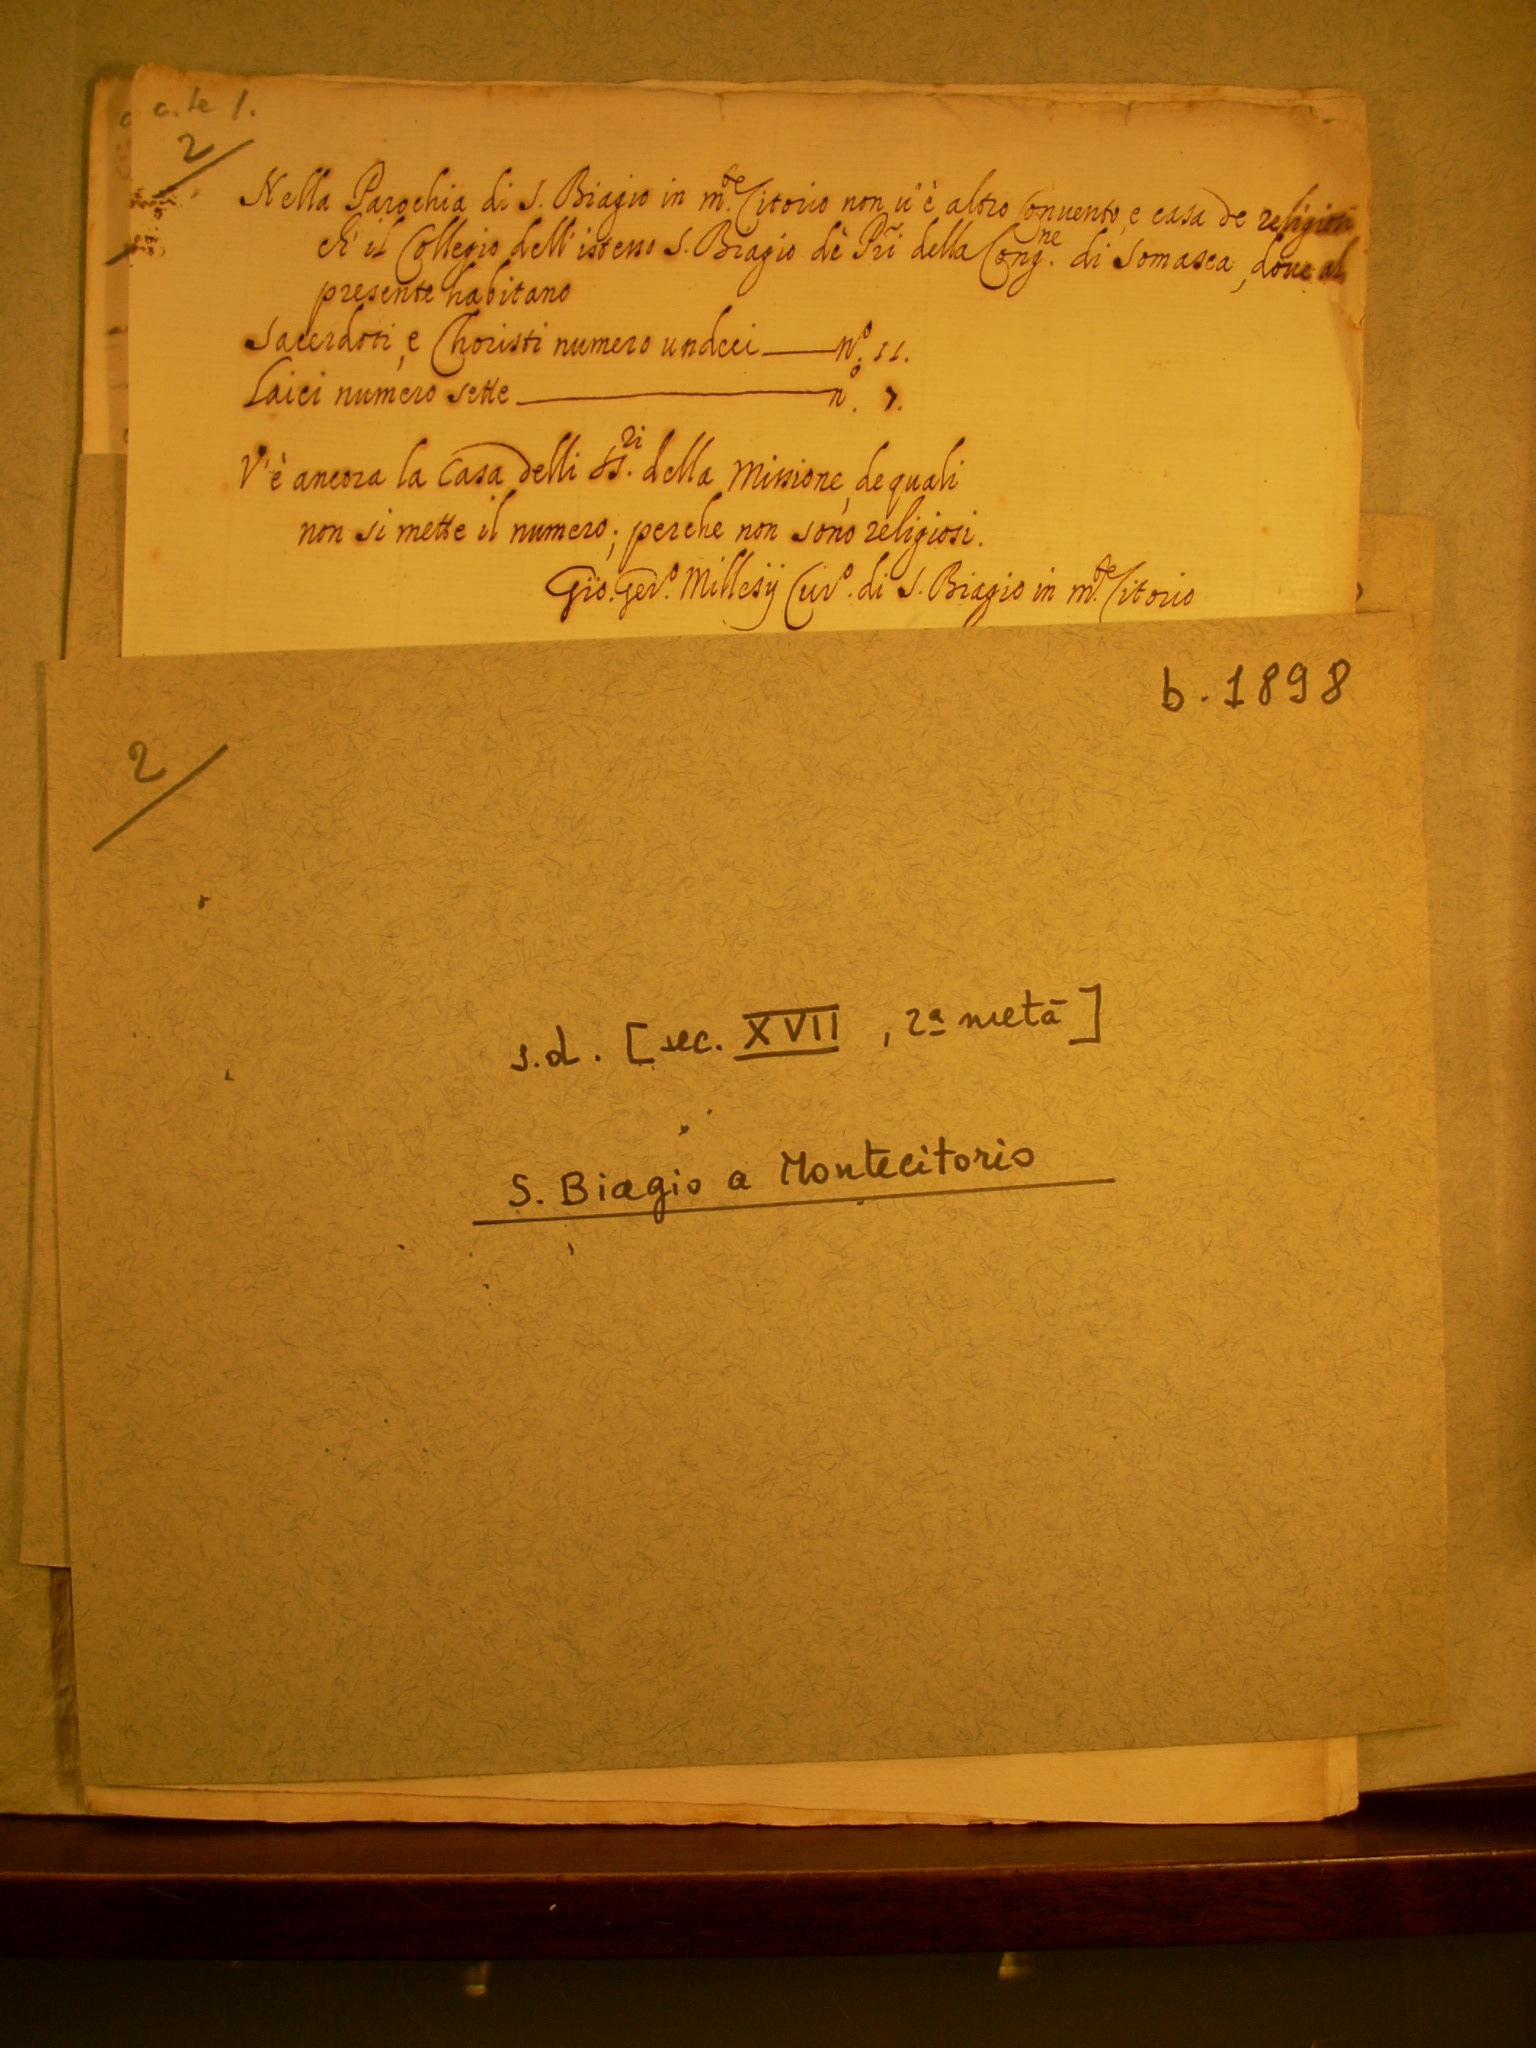 c. te 1.
2
Nella Parochia di S. Biagio in m.te Citorio non u'è altro Conuento, e casa de religiosi
ch' il Collegio dell'istesso S. Biagio dè Pri della Cong.ne di Somasca, doue al
presente habitano
Sacerdoti, e Choristi numero undeci — N.o 11.
Laici numero sette — n.o 7.
V'è ancora la Casa delli SS.ri della Missione, de quali
non si mette il numero; perche non sono religiosi.
Gio. Ger.o Millesij Cur.o di S. Biagio in m.te Citorio
b. 1898
2
s.d. [sec. XVII, 2ª metà]
S. Biagio a Montecitorio